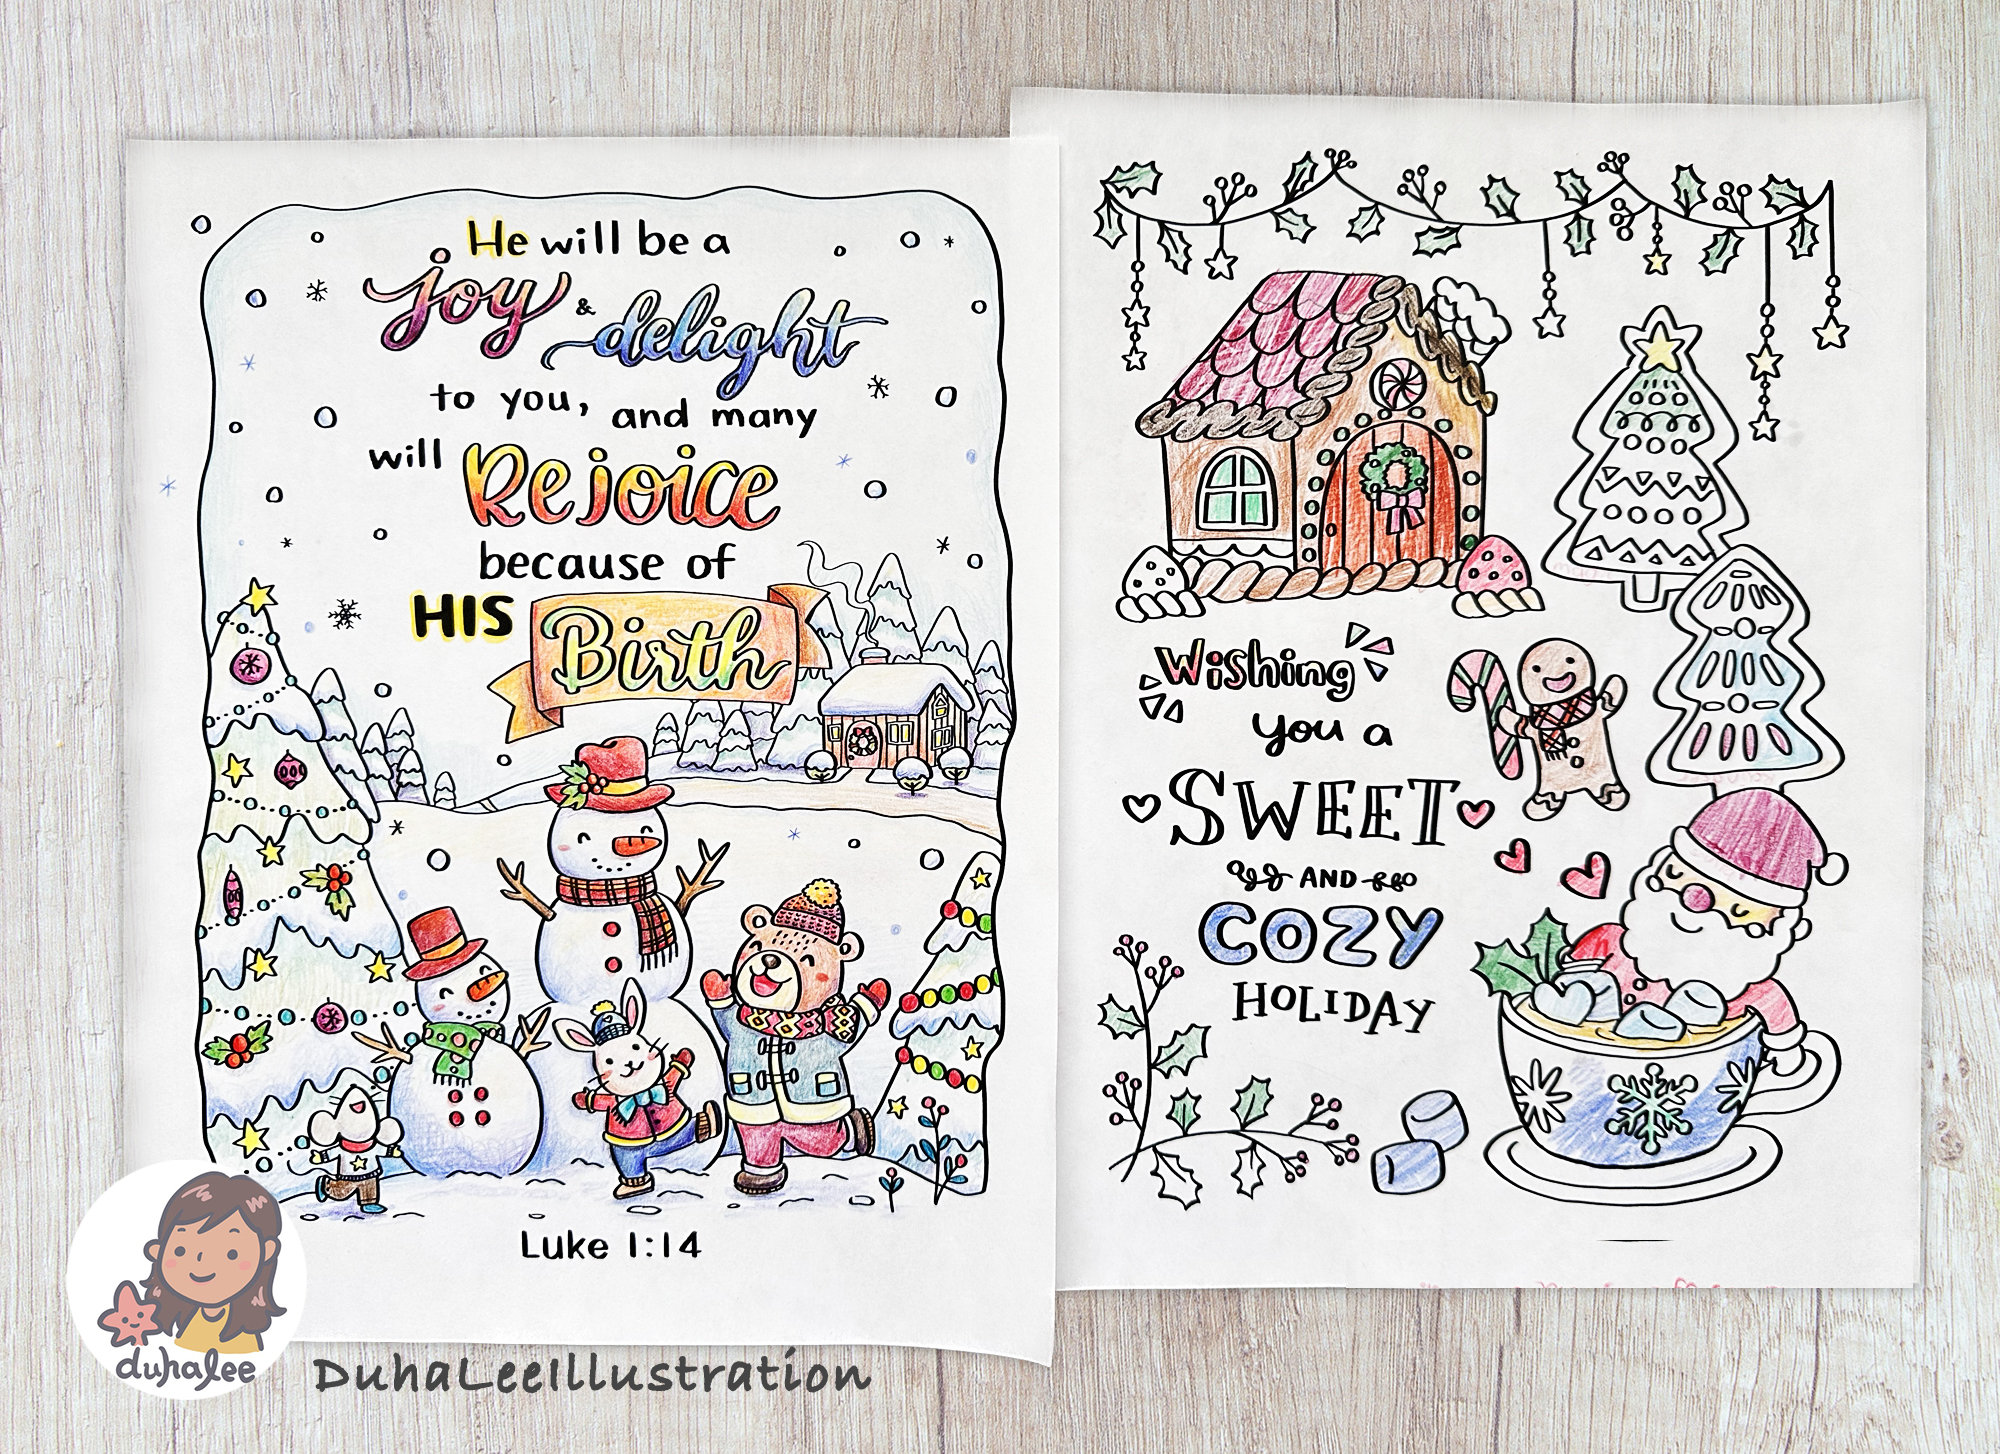 He will be a
joy & delight
to you, and many
will Rejoice
because of
HIS Birth
Luke 1:14
Wishing
you a
SWEET
AND
COZY
HOLIDAY
duhalee
DuhaLeeIllustration